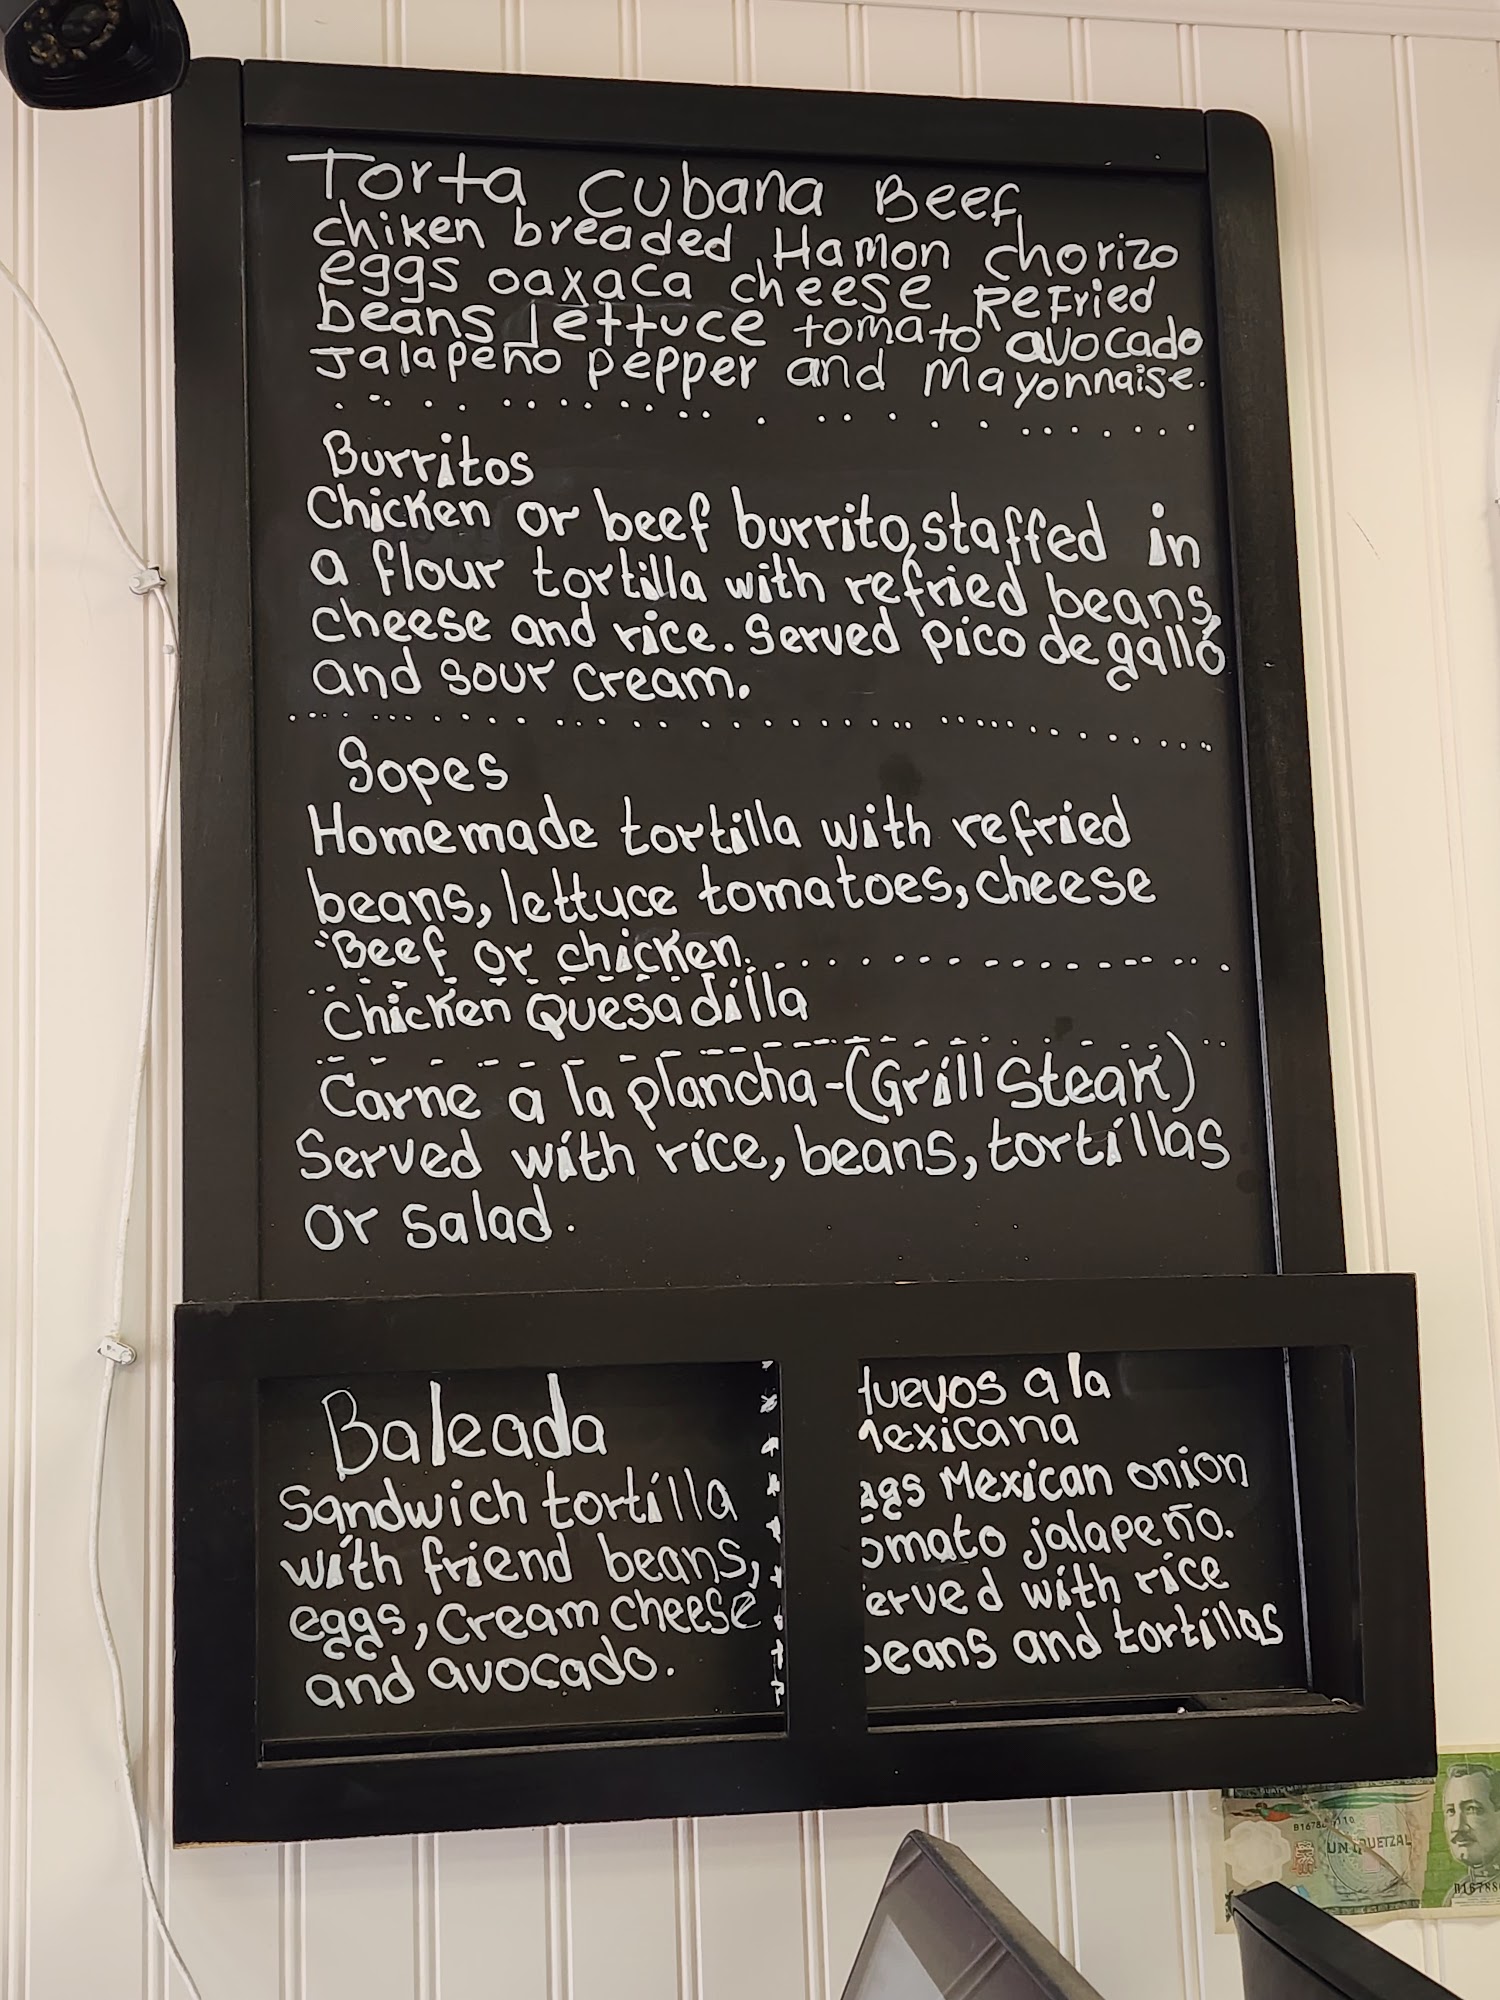 Torta Cubana Beef
chiken breaded Hamon chorizo
eggs oaxaca cheese Refried
beans lettuce tomato avocado
Jalapeño pepper and Mayonnaise.
Burritos
Chicken or beef burrito,staffed in
a flour tortilla with refried beans,
cheese and rice. Served pico de gallo
and sour cream.
Sopes
Homemade tortilla with refried
beans, lettuce tomatoes, cheese
"Beef or chicken.
Chicken Quesadilla
Carne a la plancha-(Grill Steak)
Served with rice, beans, tortillas
or salad.
Baleada
Sandwich tortilla
with friend beans,
eggs, Cream cheese
and avocado.
uevos a la
exicana
ggs Mexican onion
omato jalapeño.
erved with rice
eans and tortillas
UN QUETZAL